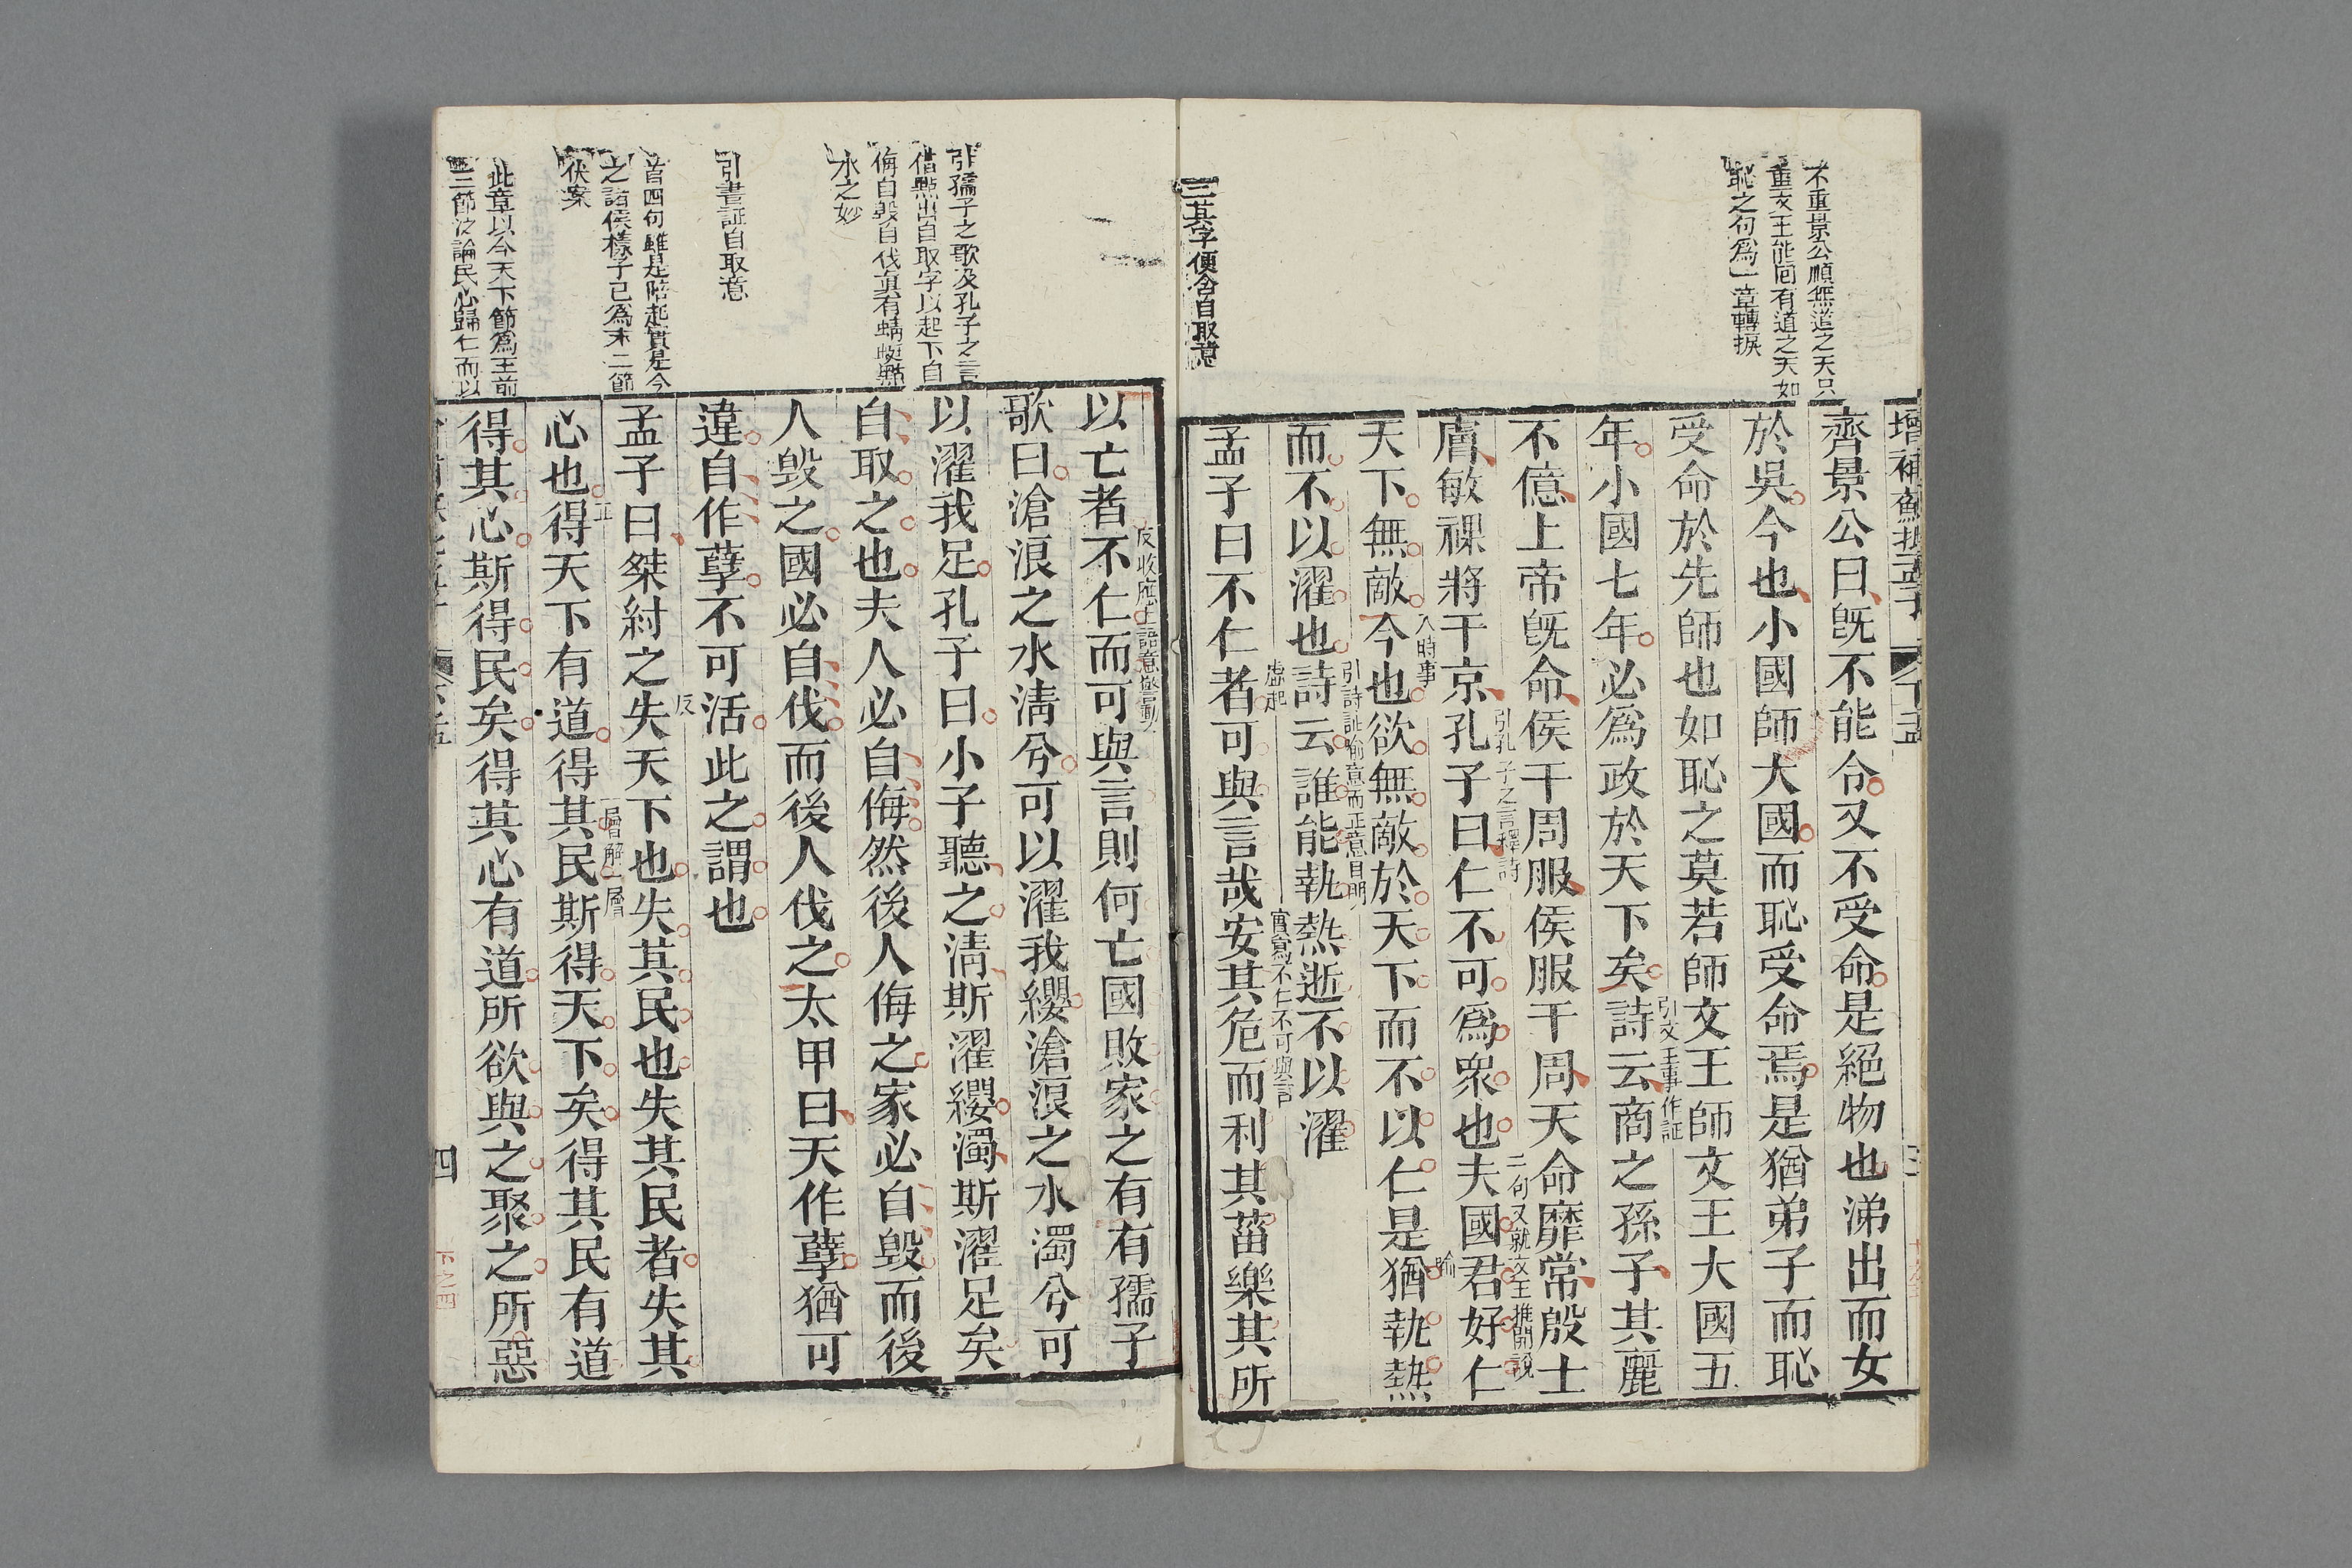 不重景公順無道之天只
重文王能囘有道之天如
恥之句爲一章轉捩
三其字便含自取意
增補蘇批孟子
齊景公曰旣不能令又不受命是絕物也涕出而女
於吳今也小國師大國而恥受命焉是猶弟子而恥
受命於先師也如恥之莫若師文王師文王大國五
引文王事作証
年小國七年必爲政於天下矣詩云商之孫子其麗
不億上帝旣命侯于周服侯服于周天命靡常殷士
引孔子之言釋詩
二句又就文王推開說
膚敏祼將于京孔子曰仁不可爲衆也夫國君好仁
入時事
喻
天下無敵今也欲無敵於天下而不以仁是猶執熱
引詩証喻意而正意自明
而不以濯也詩云誰能執熱逝不以濯
虛起
實寫不仁不可與言
孟子曰不仁者可與言哉安其危而利其菑樂其所
引孺子之歌及孔子之言
借點出自取字以起下自
侮自毀自伐眞有蜻蜓點
水之妙
引書証自取意
首四句雖是陪起實是今
之諸侯樣子已爲末二節
伏案
此章以今天下節爲主前
三節泛論民心歸仁而以
反收應上語意警動
以亡者不仁而可與言則何亡國敗家之有有孺子
歌曰滄浪之水淸兮可以濯我纓滄浪之水濁兮可
以濯我足孔子曰小子聽之淸斯濯纓濁斯濯足矣
自取之也夫人必自侮然後人侮之家必自毀而後
人毀之國必自伐而後人伐之太甲曰天作孽猶可
違自作孽不可活此之謂也
反
孟子曰桀紂之失天下也失其民也失其民者失其
正
一層解一層
心也得天下有道得其民斯得天下矣得其民有道
得其心斯得民矣得其心有道所欲與之聚之所惡
四
下之四